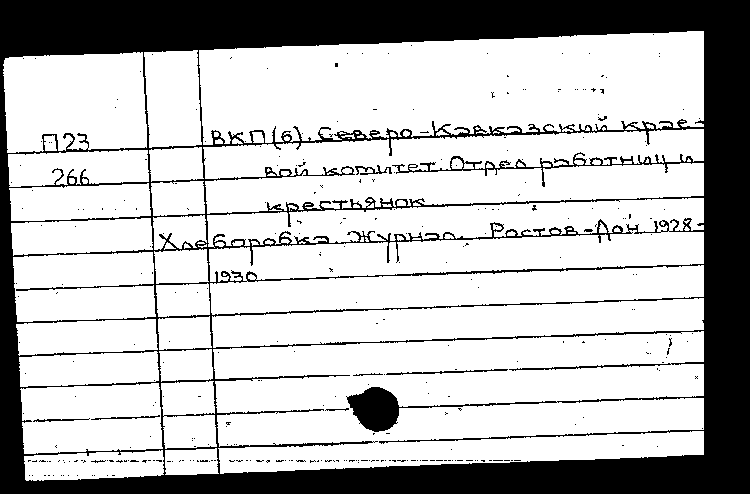 П23 ВКП(б). Северо-Кавказский крае-
266 вой комитет. Отдел работниц и
крестьянок
Хлеборобка. Журнал. Ростов-Дон 1928-
1930